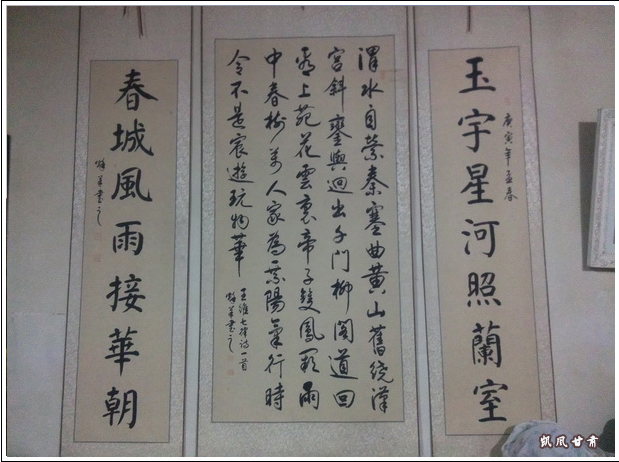 玉宇星河照蘭室
庚寅年孟春
渭水自縈秦塞曲黃山舊繞漢
宮斜鑾輿迥出千門柳閣道回
看上苑花雲裏帝子雙鳳闕雨
中春樹萬人家為乘陽氣行時
令不是宸遊玩物華
王維七律詩一首
書之
春城風雨接華朝
書之
凱風甘肅